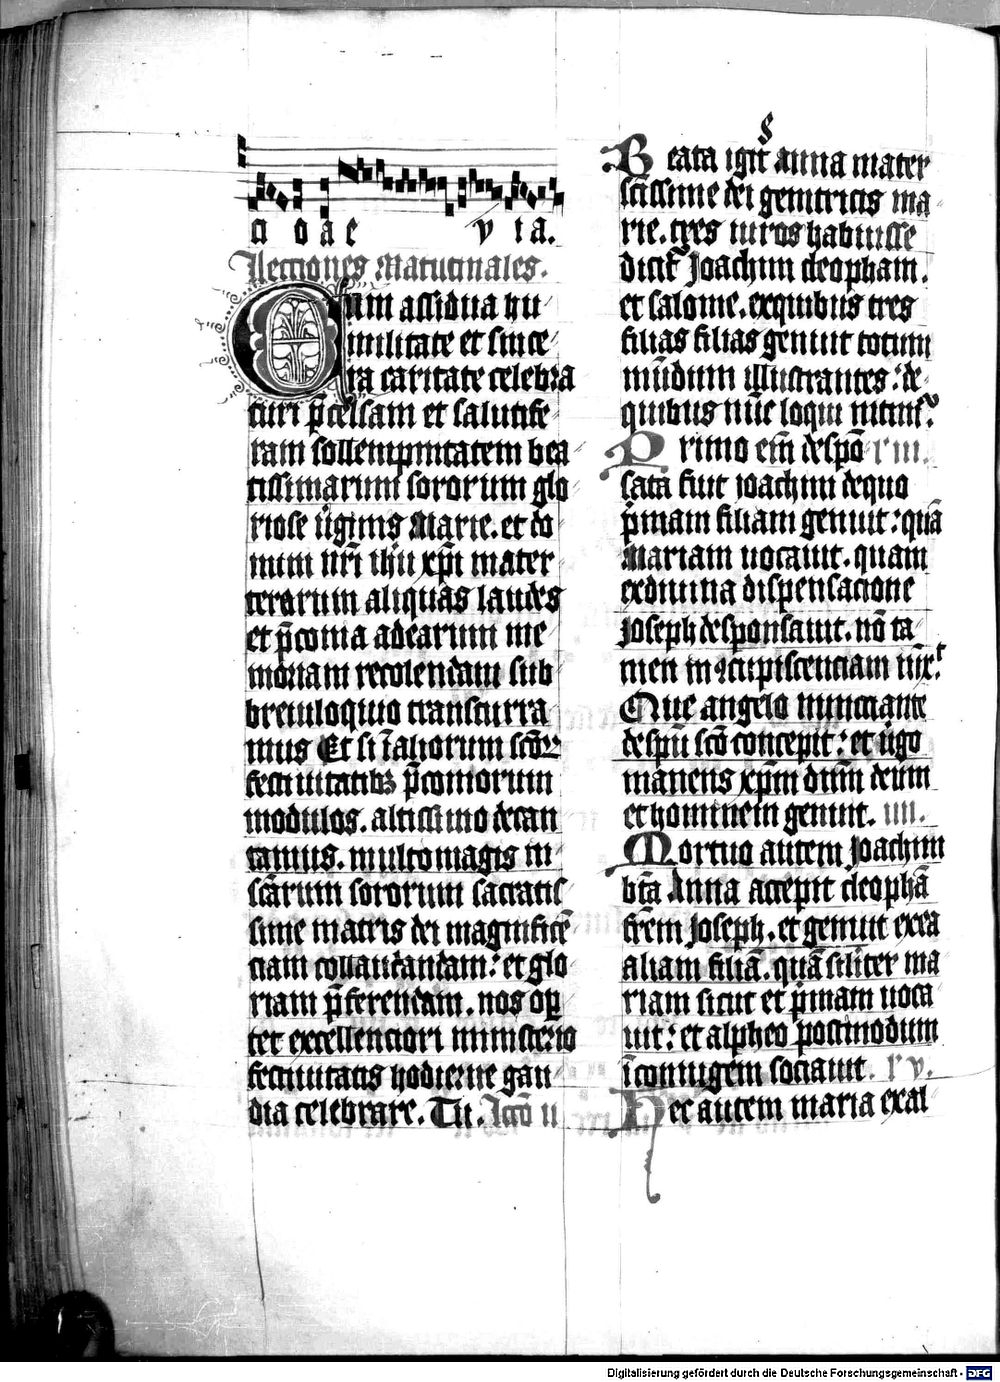 ci o a e v i a.
Lectiones Matutinales.
Cum assidua hu
militate et since
ra caritate celebra
turi p̄celsam et salutife
ram sollempnitatem bea
tissimarum sororum glo
riose v̄ginis Marie. et do
mini nr̄i ihū xp̄i mater
terarum aliquas laudes
et p̄conia ad earum me
moriam recolendam sub
breviloquio transcurra
mus Et si ī aliorum scōꝝ
festivitatibꝫ p̄coniorum
modulos. altissimo decan
tamus. multo magis in
scārum sororum sacratis
sime matris dei magnificē
ciam collaudandam: et glo
riam p̄ferendam. nos opꝑ
tet excellenciori ministerio
festivitatis hodierne gau
dia celebrare. Tu. Lccō ii
Beata igit̄ anna mater
sc̄issime dei genitricis ma
rie. tres viros habuisse
dicit̄ Joachim cleopham.
et salome. ex quibus tres
filias filias genuit totum
mūdum illustrantes: de
quibus nūc loqui nitimur
Primo em̄ despō l' iii.
sata fuit ioachim de quo
p̄mam filiam genuit: quā
Mariam vocavit. quam
ex divina dispensacione
Joseph desponsavit. nō ta
men in ꝯcupiscenciam
Que angelo nunciante
de spū scō concepit: et v̄go
manens xp̄m dūm deum
et hominem genuit. iiii.
Mortuo autem Joachim
bt̄a Anna accepit cleophā
fr̄em Joseph. et genuit ex ea
aliam filiā. quā siliter ma
riam sicut et p̄mam voca
vit: et alpheo postmodum
ī coniugem sociavit. l' v.
Hec autem maria exal
Digitalisierung gefördert durch die Deutsche Forschungsgemeinschaft - DFG